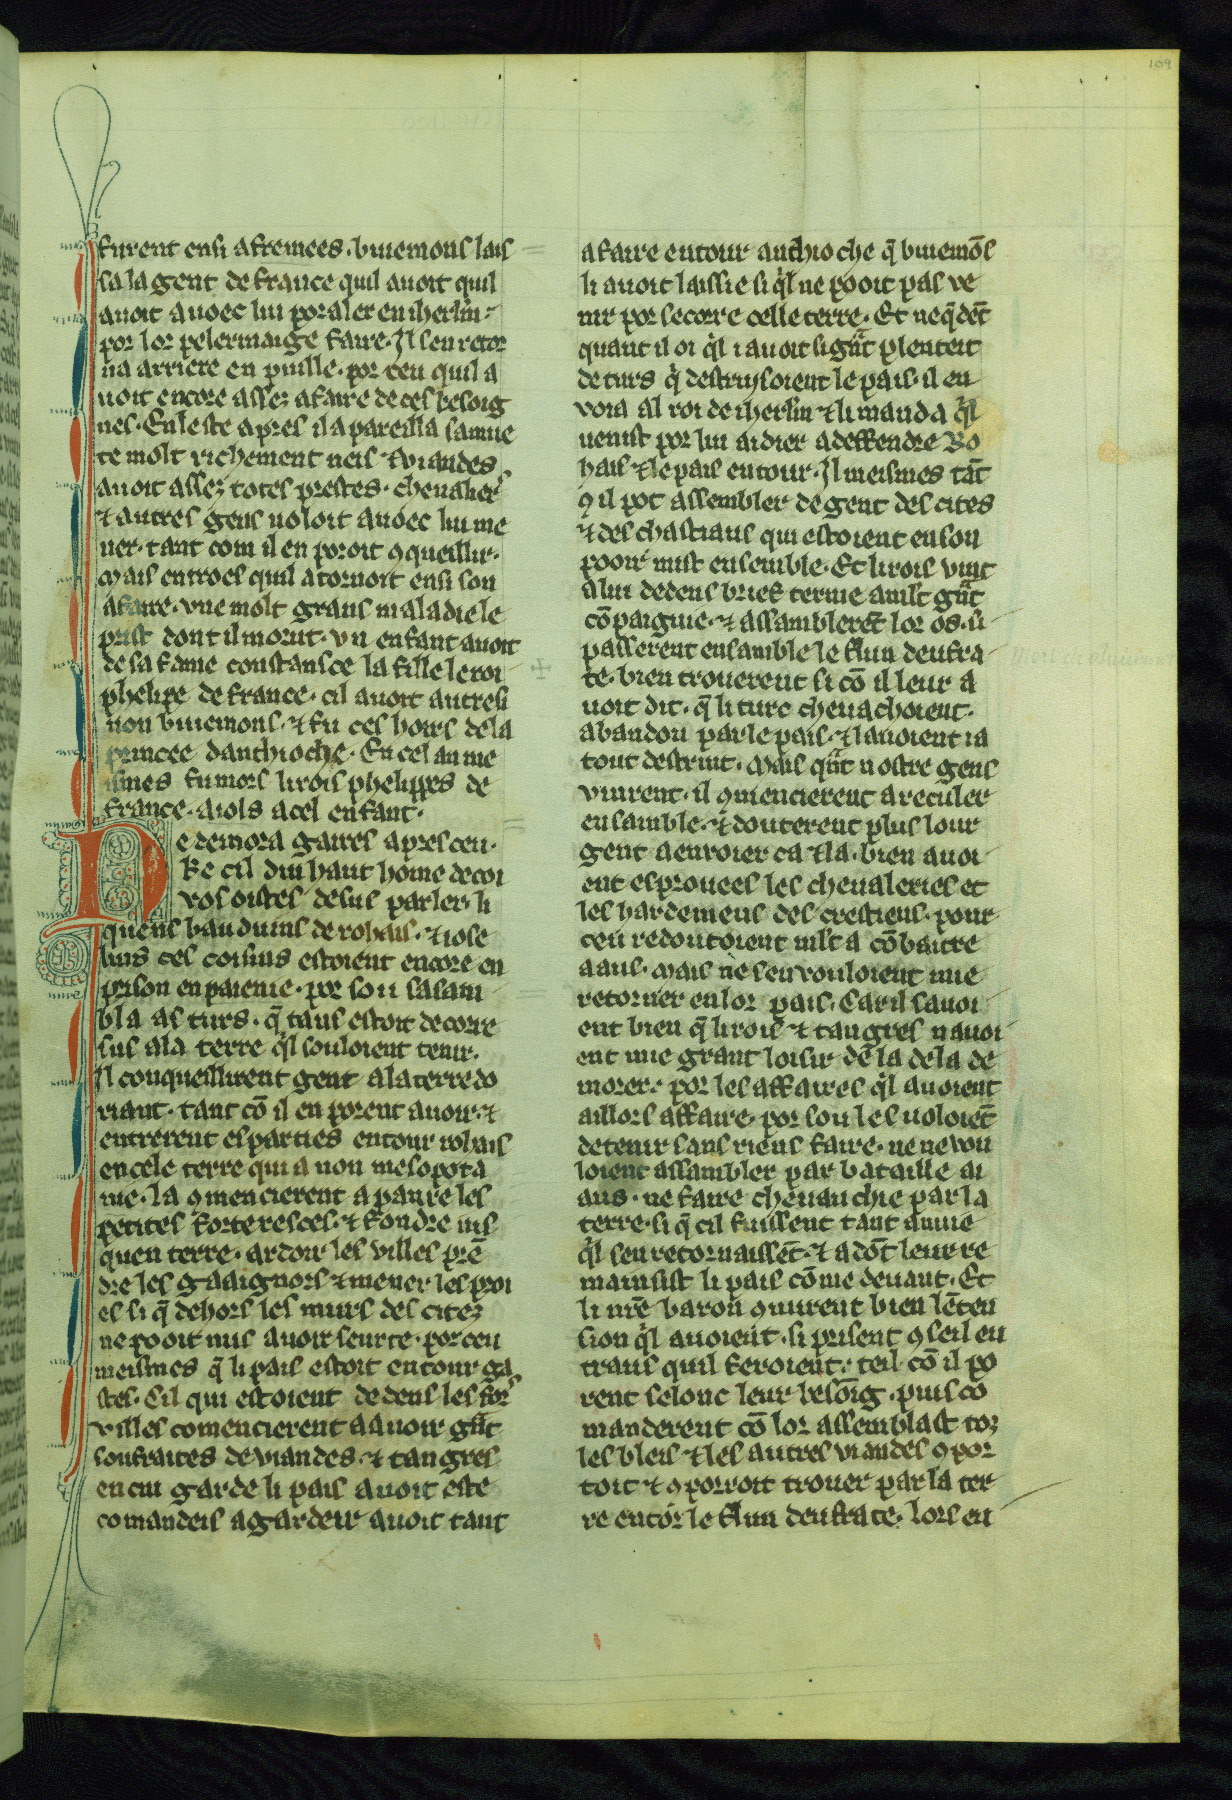 109
furent ensi afremees. buiemons lais
sa la gent de france quil auoit quil
auoit auoec lui por aler en iherlm̃
por lor pelermaige faire. Il sen retor
na arriere en puille. por ceu quil a
uoit encore assez afaire de ces besoig
nes. En leste apres il apareilla sa mue
te molt richement neis ⁊ viandes
auoit assez totes prestes. cheualiers
⁊ autres gens uoloit auoec lui me
ner. tant com il en poroit ꝯqueillir.
Mais entroes quil atornoit ensi son
afaire. vne molt grans maladie le
prist dont il morut. vn enfant auoit
de sa fame constansce la fille le roi
phelipe de france. cil auoit autresi
non buiemons. ⁊ fu ces hoirs de la
princee danthioche. En cel an me
ismes fu mors li rois phelippes de
france. aiols a cel enfant.
Ne demora gaires apres ceu.
Ke cil dui haut home de coi
vos oistes desus parler. li
quens bauduins de rohais. ⁊ iose
lins ces cosins estoient encore en
prison en paienie. por son sasam
bla as turs. q̃ tans estoit de corre
sus a la terre q̃l souloient tenir.
Il conqueillirent gent a la terre do
riant. tant cõ il en porent auoir. ⁊
entrerent es parties entour rohais
en cele terre qui a non mesopota
me. la ꝯmencierent a panre les
petites forteresces. ⁊ fondre ius
quen terre. ardoir les villes prẽ
dre les gaaignors ⁊ mener les proi
es si q̃ dehors les murs des citez
ne pooit nus auoir seurte. por ceu
meismes q̃ li pais estoit entour ga
stes. Cil qui estoient dedens les fors
villes comencierent a auoir gñt
soufraites de viandes. ⁊ tangres
en cui garde li pais auoit este
comandeis a gardeir auoit tant
afaire entour anthioche q̃ buiemõs
li auoit laissie si q̃l ne pooit pas ve
nir por secorre celle terre. Et neq̃dẽt
quant il oi q̃l i auoit si gñt plenteit
de turs q̃ destruisoient le pais. il en
voia al roi de iherlm ⁊ li manda q̃l
uenist por lui aidier a deffendre Ro
hais ⁊ le pais entour. Il meismes tãt
ꝯ il pot assembler de gent des cites
⁊ des chastiaus qui estoient en son
pooir mist ensemble. Et li rois vint
a lui dedens brief terme a mlt gñt
cõpaignie. ⁊ assamblerẽt lor os. si
passerent ensamble le flun deufra
te. bien trouerent si cõ il leur a
uoit dit. q̃ li turc cheuachoient.
abandon par le pais. ⁊ lauoient ia
tout destruit. Mais qñt nostre gens
vinrent. il ꝯmencierent a reculer
ensamble. ⁊ douterent plus lour
gent a enuoier ca ⁊ la. bien auoi
ent esprouees les cheualeries et
les hardemens des crestiens. pour
ceu redoutoient mlt a cõbatre
a aus. Mais ne sen vouloient mie
retorner en lor pais. Car il sauoi
ent bien q̃ li rois ⁊ tangres nauoi
ent mie grant loisir de la de la de
morer. por les affaires q̃l auoient
aillors affaire. por sou les uoloiẽt
detenir sans riens faire. ne ne vou
loient assambler par bataille ai
aus. ne faire cheuauchie par la
terre. si q̃ cil fuissent tant anuie
q̃l sen retornaissẽt. ⁊ a dõt leur re
mainsist li pais cõme deuant. Et
li nr̃e baron ꝯnurent bien lẽten
sion q̃l auoient. si prisent ꝯseil en
traus quil feroient. teil cõ il po
rent selonc leur besõig. puis co
manderent cõ lor assemblast toz
les bleis ⁊ les autres viandes ꝯ por
toit ⁊ ꝯ porroit trouer par la ter
re entor le flun deufrate. lors en